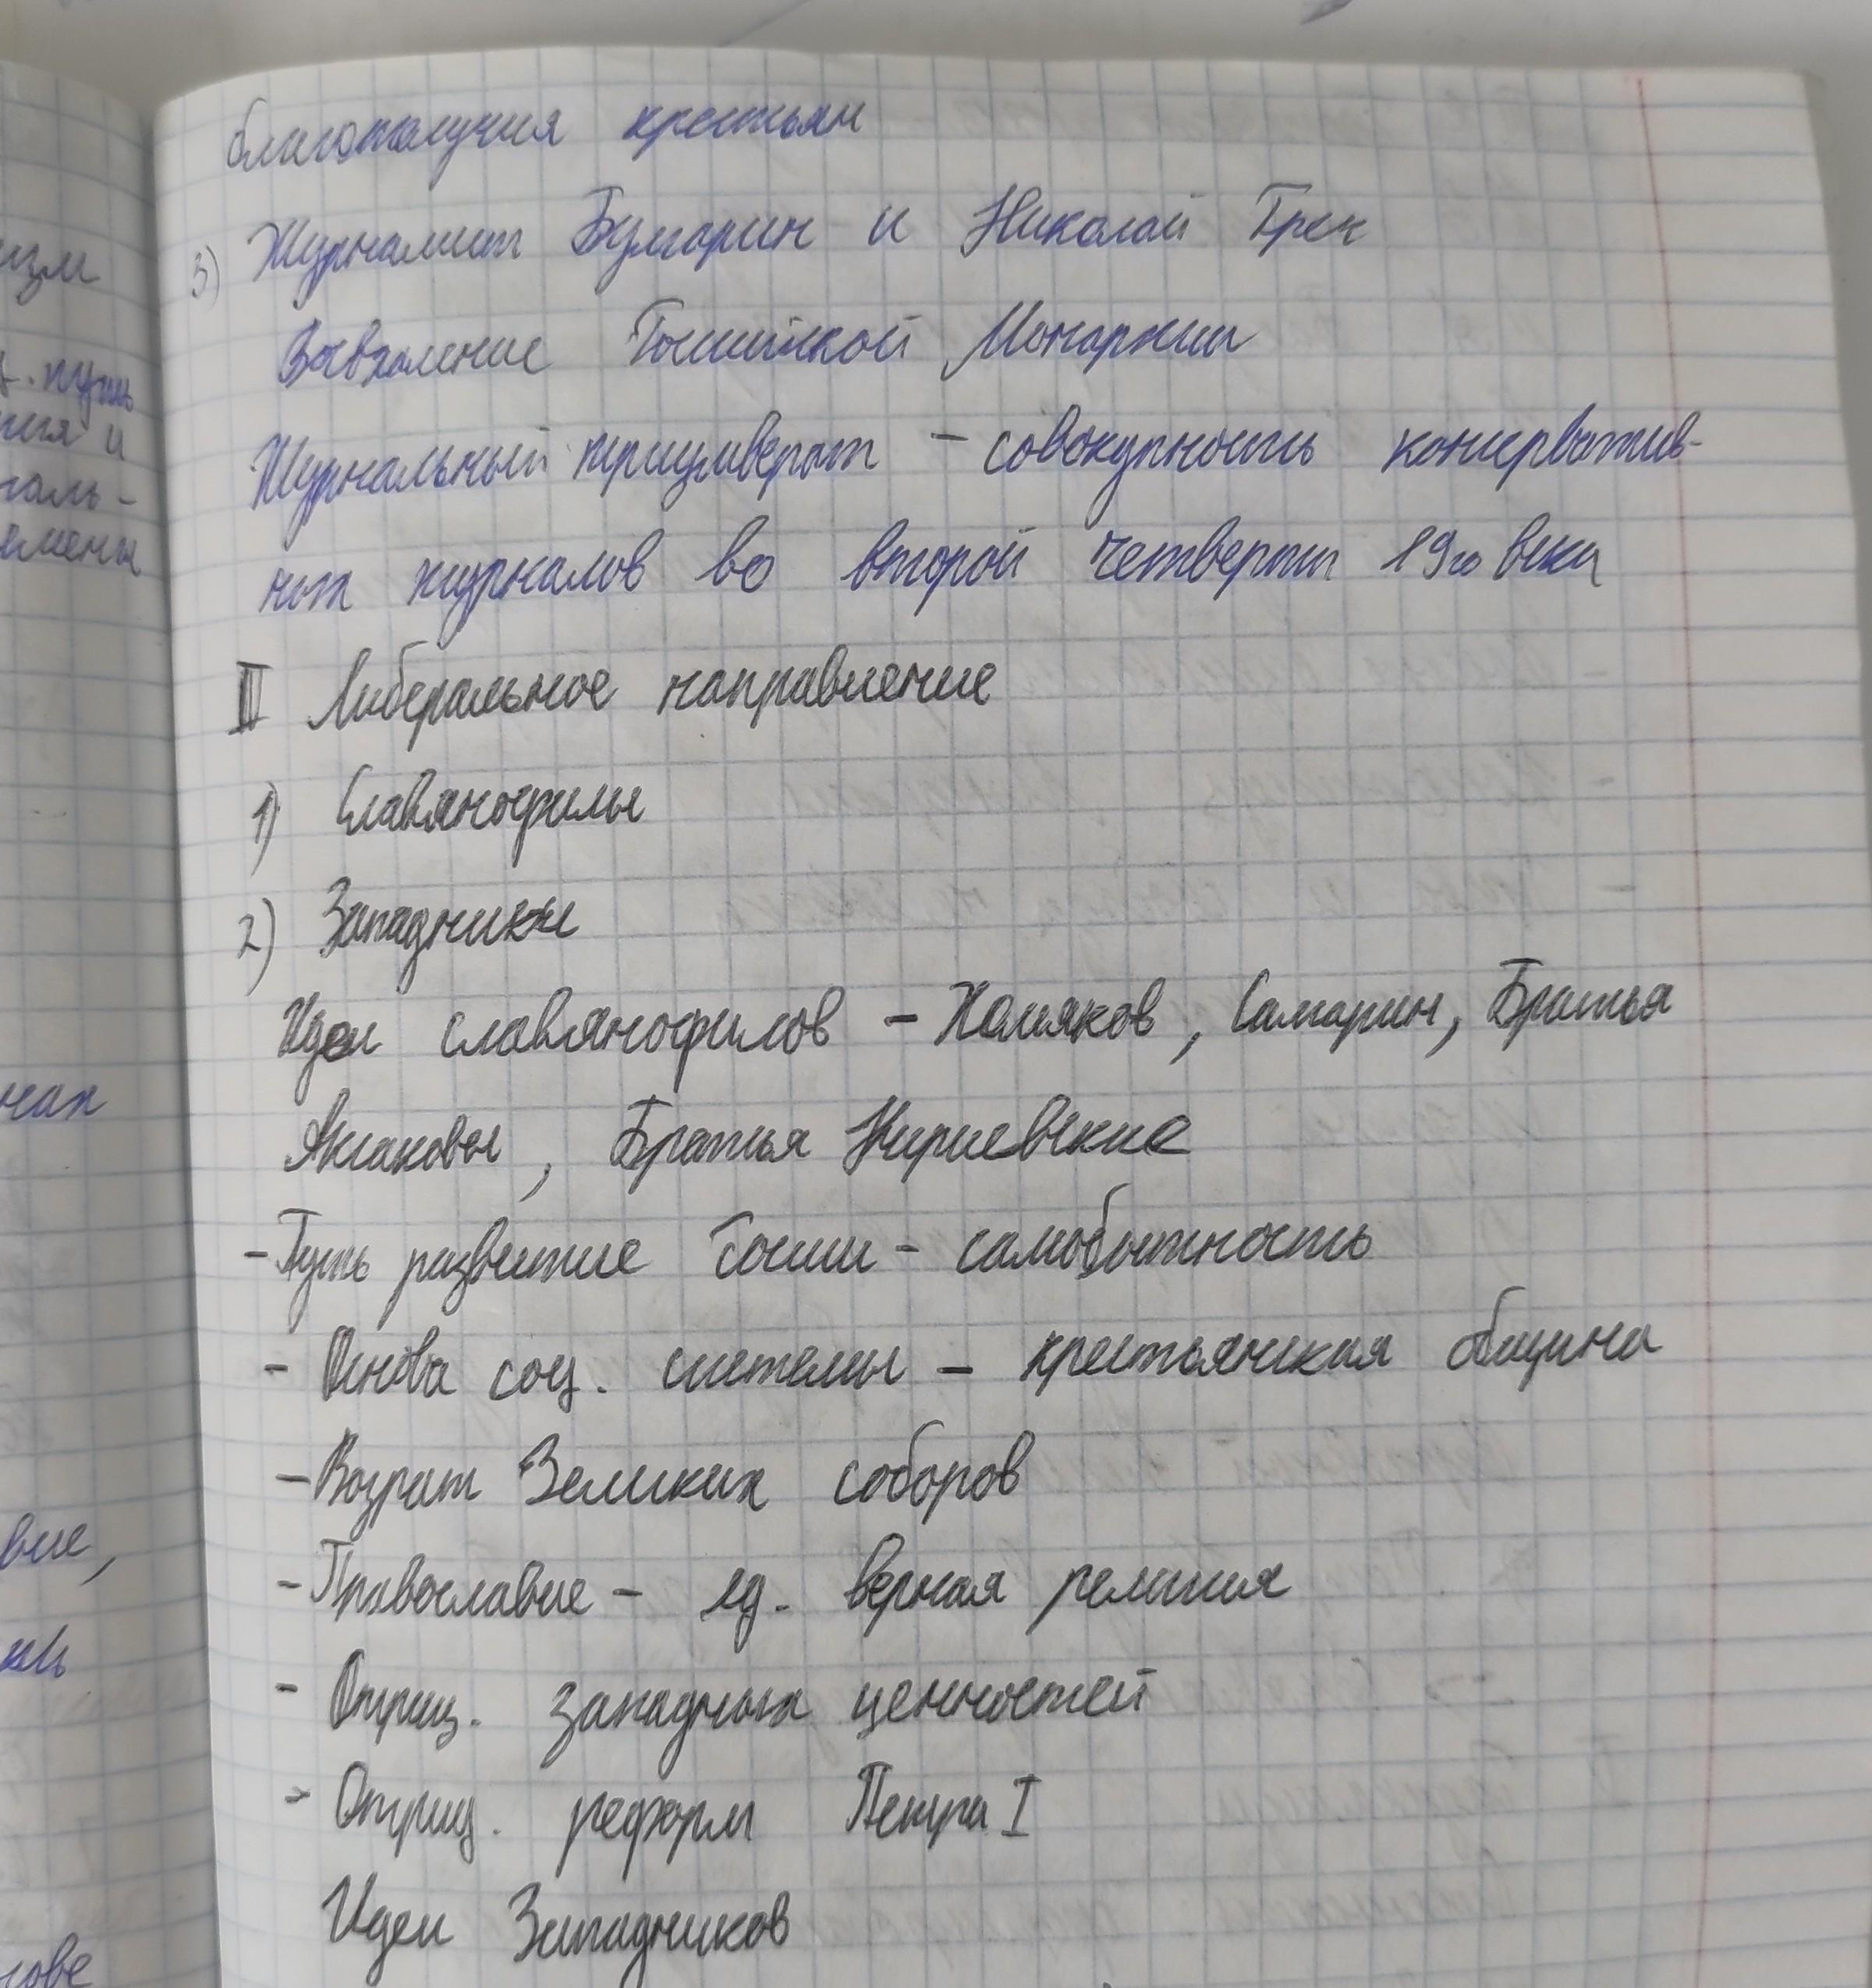 благополучия крестьян
3) Журналист Булгарин и Николай Греч
Восхваление Российской Монархии
Журнальный триумверат – совокупность консерватив-
ных журналов во второй четверти 19го века
II Либеральное направление
1) Славянофилы
2) Западники
Идеи славянофилов – Хомяков, Самарин, Братья
Аксаковы, Братья Киреевские
- Путь развитие России - самобытность
- Основа соц. системы – крестьянская община
- Возрат Земских соборов
- Православие – ед. верная религия
- Отриц. западных ценностей
- Отриц. реформ Петра I
Идеи Западников